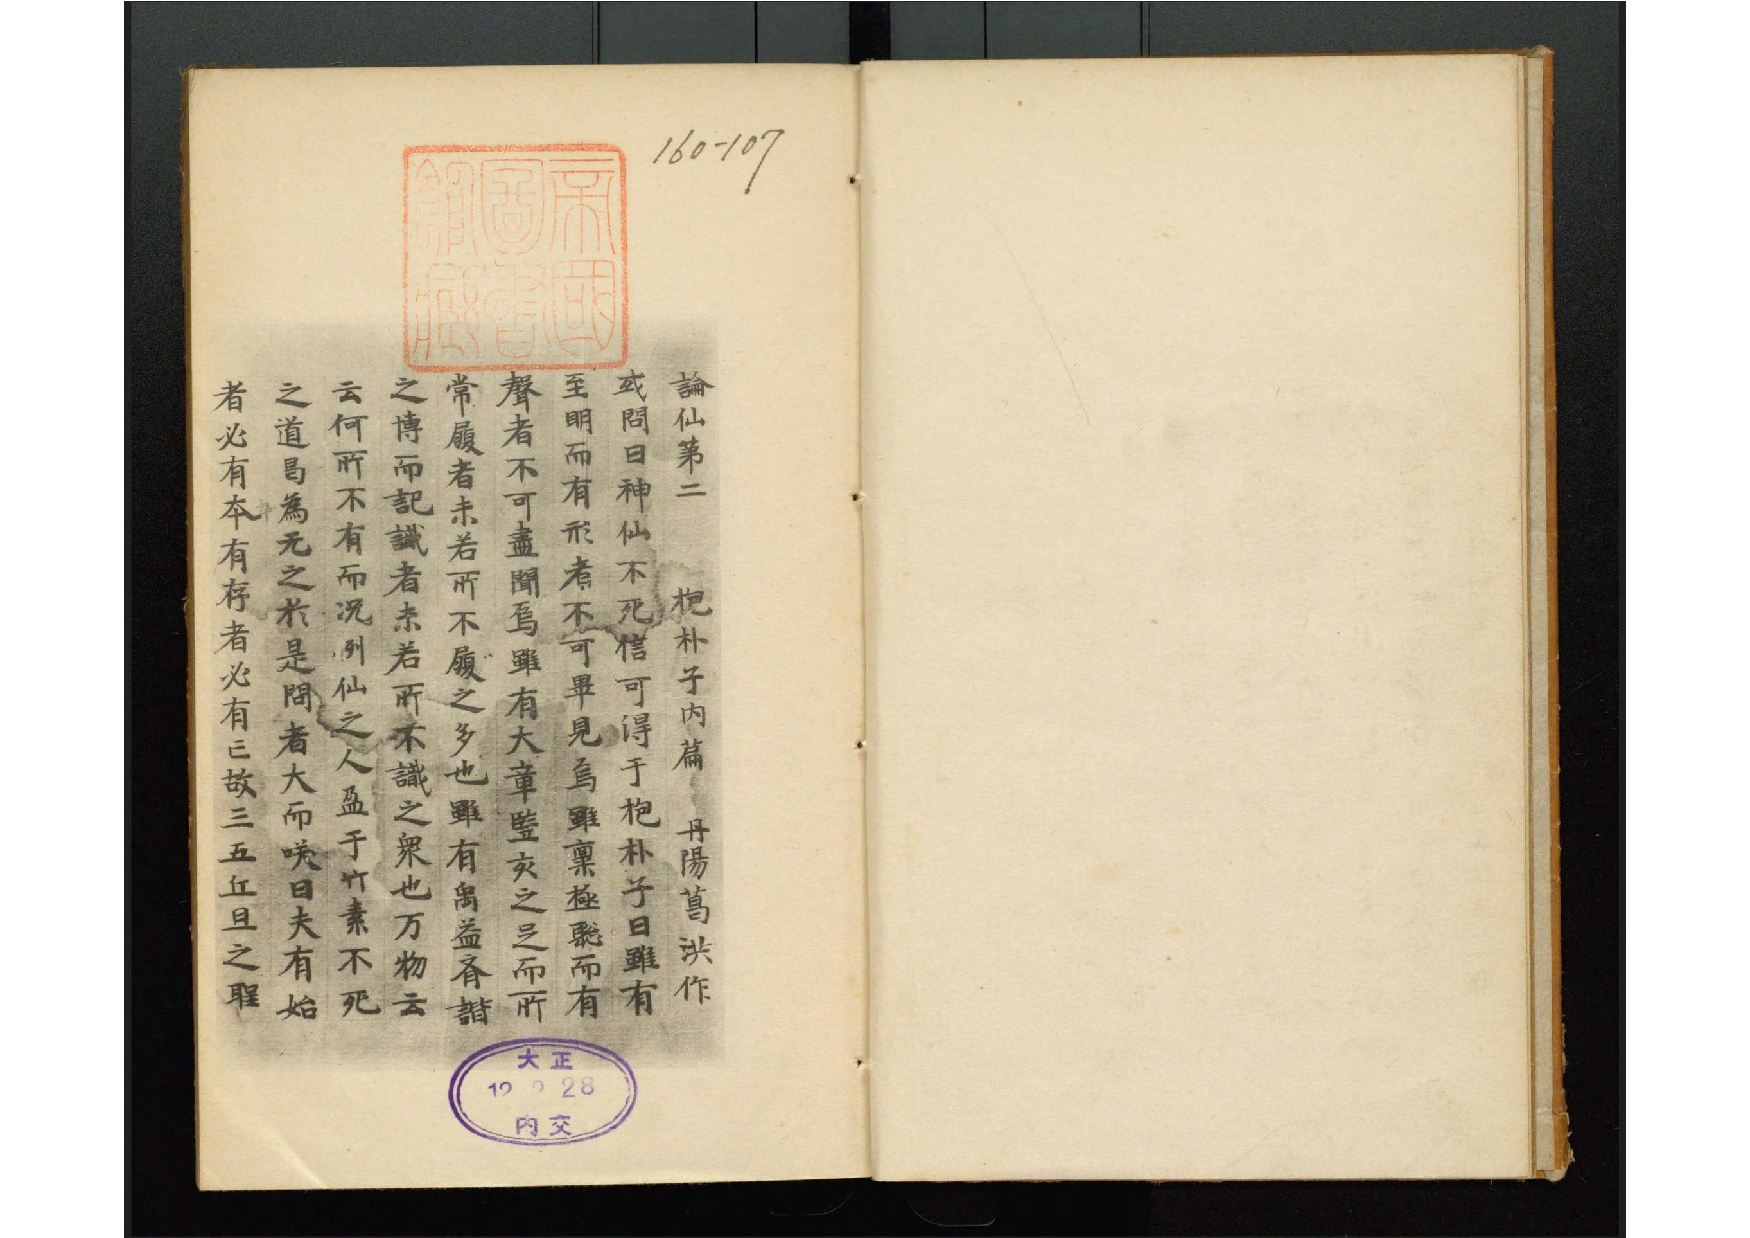 160-107
帝國
圖書
館藏
論仙第二　抱朴子内篇　丹陽葛洪作
或問曰神仙不死信可得于抱朴子曰雖有
至明而有形者不可畢見焉雖稟極聡而有
聲者不可盡聞焉雖有大章竪亥之足而所
常履者未若所不履之多也雖有禹益齊諧
之博而記識者未若所不識之衆也万物云
云何所不有而况列仙之人盈于竹素不死
之道曷為无之於是問者大而咲曰夫有始
者必有卒有存者必有亡故三五丘旦之聖
大正
28
内交